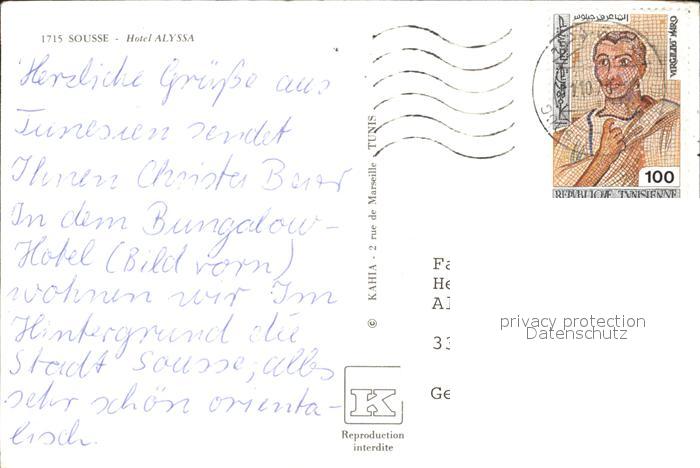 1715 SOUSSE - Hotel ALYSSA
Herzliche Grüße aus
Tunesien sendet
Ihnen Christa
In dem Bungalow-
Hotel (Bild vorn)
wohnen wir Im
Hintergrund die
Stadt Sousse, alles
sehr schön orienta-
lisch.
© KAHIA - 2 rue de Marseille - TUNIS
K
Reproduction
interdite
VERGILIVS MARO
100
REPUBLIQUE TUNISIENNE
Fa
He
Al
33
Ge
privacy protection
Datenschutz